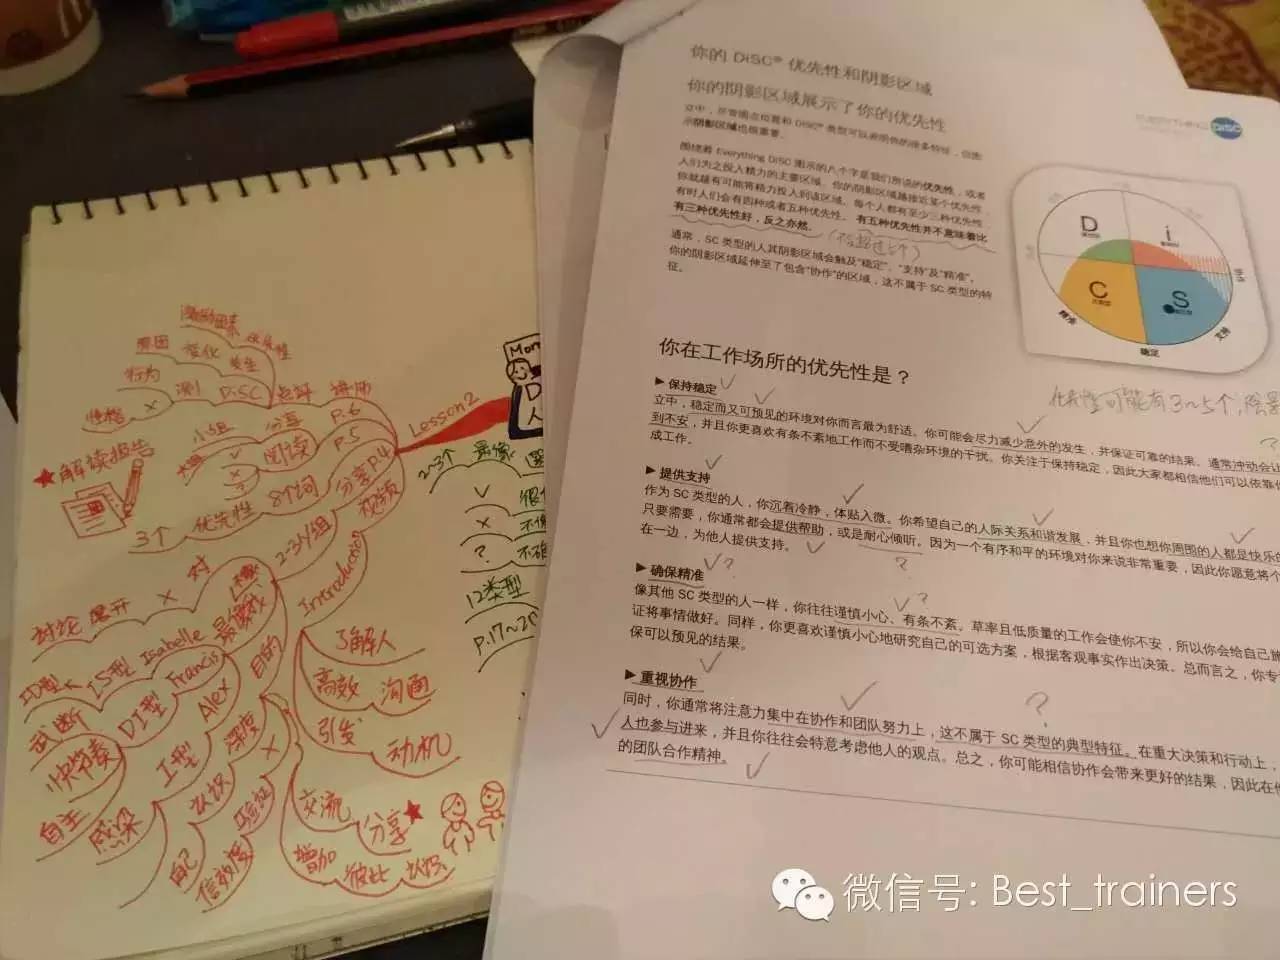 你的 DiSC® 优先性和阴影区域
你的阴影区域展示了你的优先性
立中，尽管圆点位置和 DiSC® 类型可以表明你的很多特征，但图
示阴影区域也很重要。
围绕着 Everything DiSC 图示的八个字是我们所说的优先性，或者
人们为之投入精力的主要区域。你的阴影区域越接近某个优先性，
你就越有可能将精力投入到该区域。每个人都有至少三种优先性，
有时人们会有四种或者五种优先性。有五种优先性并不意味着比
有三种优先性好，反之亦然。
通常，SC 类型的人其阴影区域会触及“稳定”、“支持”及“精准”。
你的阴影区域延伸至了包含“协作”的区域，这不属于 SC 类型的特
征。
EVERYTHING DiSC
D
i
C
S
精准
稳定
支持
你在工作场所的优先性是？
可能有3~5个，
▶ 保持稳定
立中，稳定而又可预见的环境对你而言最为舒适。你可能会尽力减少意外的发生，并保证可靠的结果。通常冲动会让
到不安，并且你更喜欢有条不紊地工作而不受嘈杂环境的干扰。你关注于保持稳定，因此大家都相信他们可以依靠
成工作。
▶ 提供支持
作为 SC 类型的人，你沉着冷静，体贴入微。你希望自己的人际关系和谐发展，并且你也想你周围的人都是快乐的
只要需要，你通常都会提供帮助，或是耐心倾听。因为一个有序和平的环境对你来说非常重要，因此你愿意将个
在一边，为他人提供支持。
▶ 确保精准
像其他 SC 类型的人一样，你往往谨慎小心、有条不紊。草率且低质量的工作会使你不安，所以你会给自己
证将事情做好。同样，你更喜欢谨慎小心地研究自己的可选方案，根据客观事实作出决策。总而言之，你专
保可以预见的结果。
▶ 重视协作
同时，你通常将注意力集中在协作和团队努力上，这不属于 SC 类型的典型特征。在重大决策和行动上，
人也参与进来，并且你往往会特意考虑他人的观点。总之，你可能相信协作会带来更好的结果，因此在
的团队合作精神。
Lesson2
激励因素
原因 变化
行为 测 DiSC 点评 讲师
性格
小组 分享 P.6
阅读 P.5
★解读报告
3个 优先性 8个词 分享P.4
视频
2-3人/组
Introduction
对
讨论 展开 ×
Isabelle
Francis
Alex
DI型
I型
武断
快节奏
自主
感染
目的
深度
认识
验证
自己
信效度
了解人
高效 沟通
引发 动机
交流 分享★
增加 彼此 认识
Mon
D
人
2~3个 最像
√
×
? 
12类型
微信号: Best_trainers